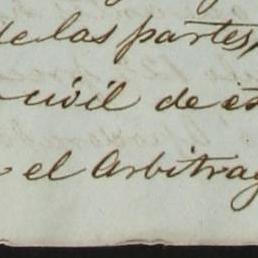 de las partes,
civil de es
el Arbitrag